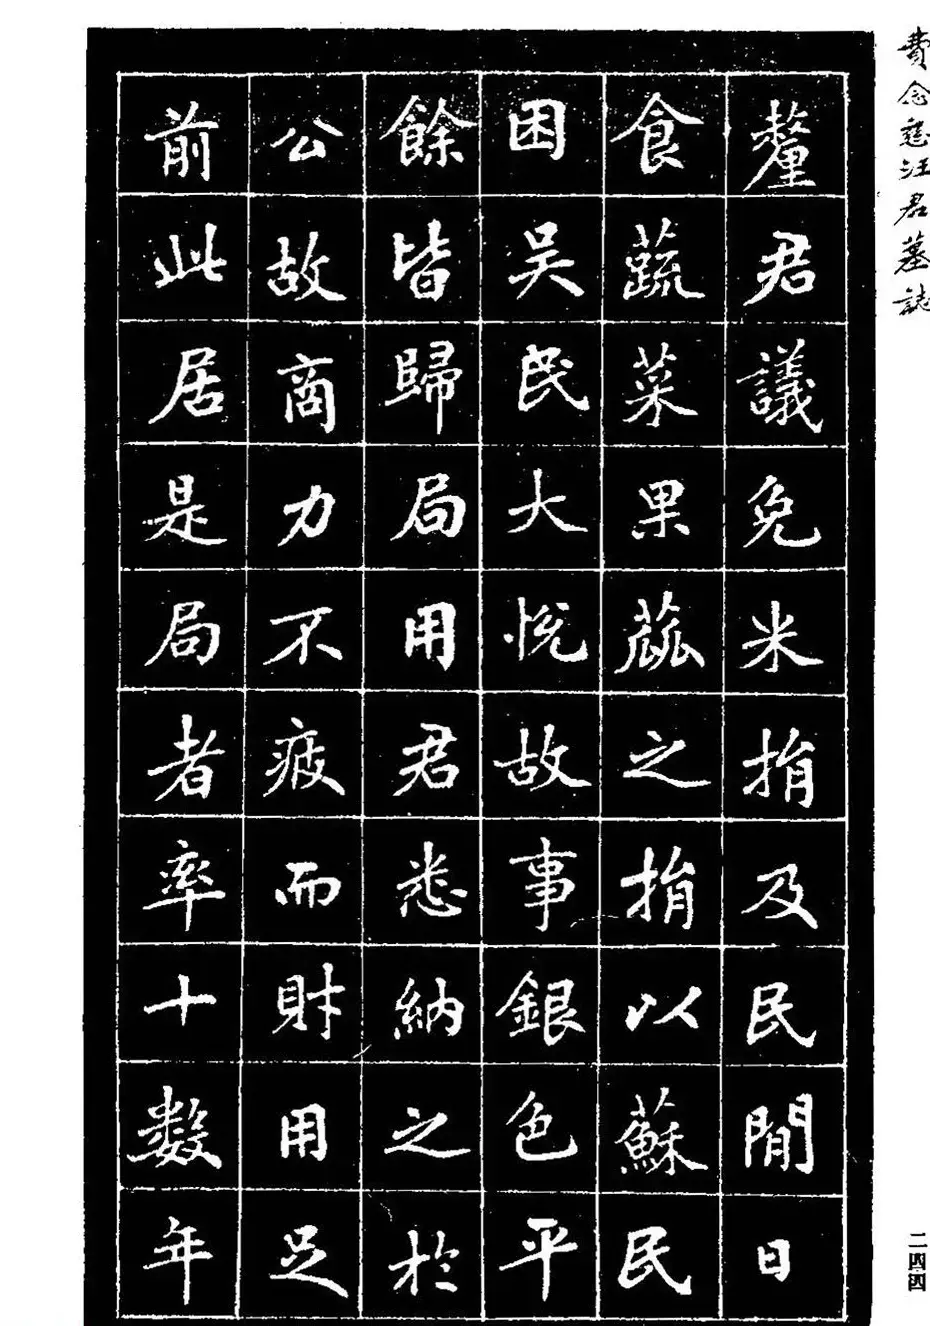 費念慈汪君墓誌
釐君議免米捐及民閒日
食蔬菜果蓏之捐以蘇民
困吴民大悦故事銀色平
餘皆歸局用君悉納之於
公故商力不疲而財用足
前此居是局者率十數年
二四四